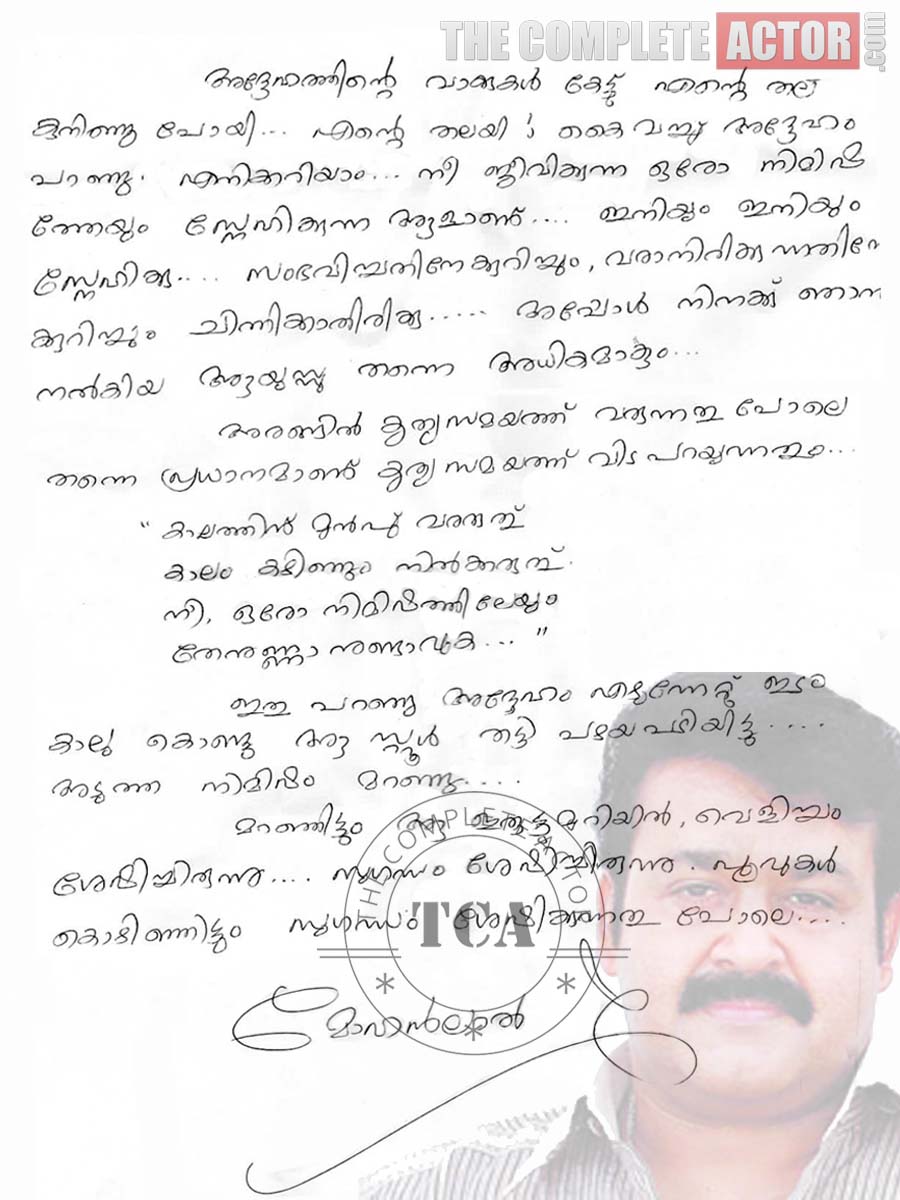 THE COMPLETE ACTOR.com
അദ്ദേഹത്തിന്റെ വാക്കുകൾ കേട്ടു എന്റെ തല
കുനിഞ്ഞു പോയി... എന്റെ തലയിൽ കൈവച്ചു അദ്ദേഹം
പറഞ്ഞു. എനിക്കറിയാം... നീ ജീവിക്കുന്ന ഒരോ നിമിഷ
ത്തേയും സ്നേഹിക്കുന്ന ആളാണ്.... ഇനിയും ഇനിയും
സ്നേഹിക്കു.... സംഭവിച്ചതിനേക്കുറിച്ചും, വരാനിരിക്കുന്നതിനേ
ക്കുറിച്ചും ചിന്തിക്കാതിരിക്കു..... അപ്പോൾ നിനക്ക് ഞാൻ
നൽകിയ ആയുസ്സു തന്നെ അധികമാകും...
അരങ്ങിൽ കൃത്യസമയത്ത് വരുന്നതു പോലെ
തന്നെ പ്രധാനമാണ് കൃത്യസമയത്ത് വിടപറയുന്നതും...
"കാലത്തിന് മുൻപു വരരുത്
കാലം കഴിഞ്ഞും നിൽക്കരുത്.
നീ, ഒരോ നിമിഷത്തിലേയും
തേനുണ്ണാനുണ്ടാവുക..."
ഇതു പറഞ്ഞു അദ്ദേഹം എഴുന്നേറ്റു ഇടം
കാലു കൊണ്ടു ആ സ്റ്റൂൾ തട്ടി പഴയപടിയിട്ടു....
അടുത്ത നിമിഷം മറഞ്ഞു....
മറഞ്ഞിട്ടും ആ ഇരുട്ടുമുറിയിൽ, വെളിച്ചം
ശേഷിച്ചിരുന്നു.... സുഗന്ധം ശേഷിച്ചിരുന്നു. പൂവുകൾ
കൊഴിഞ്ഞിട്ടും സുഗന്ധം ശേഷിക്കുന്നതു പോലെ....
THE COMPLETE ACTOR
TCA
മോഹൻലാൽ